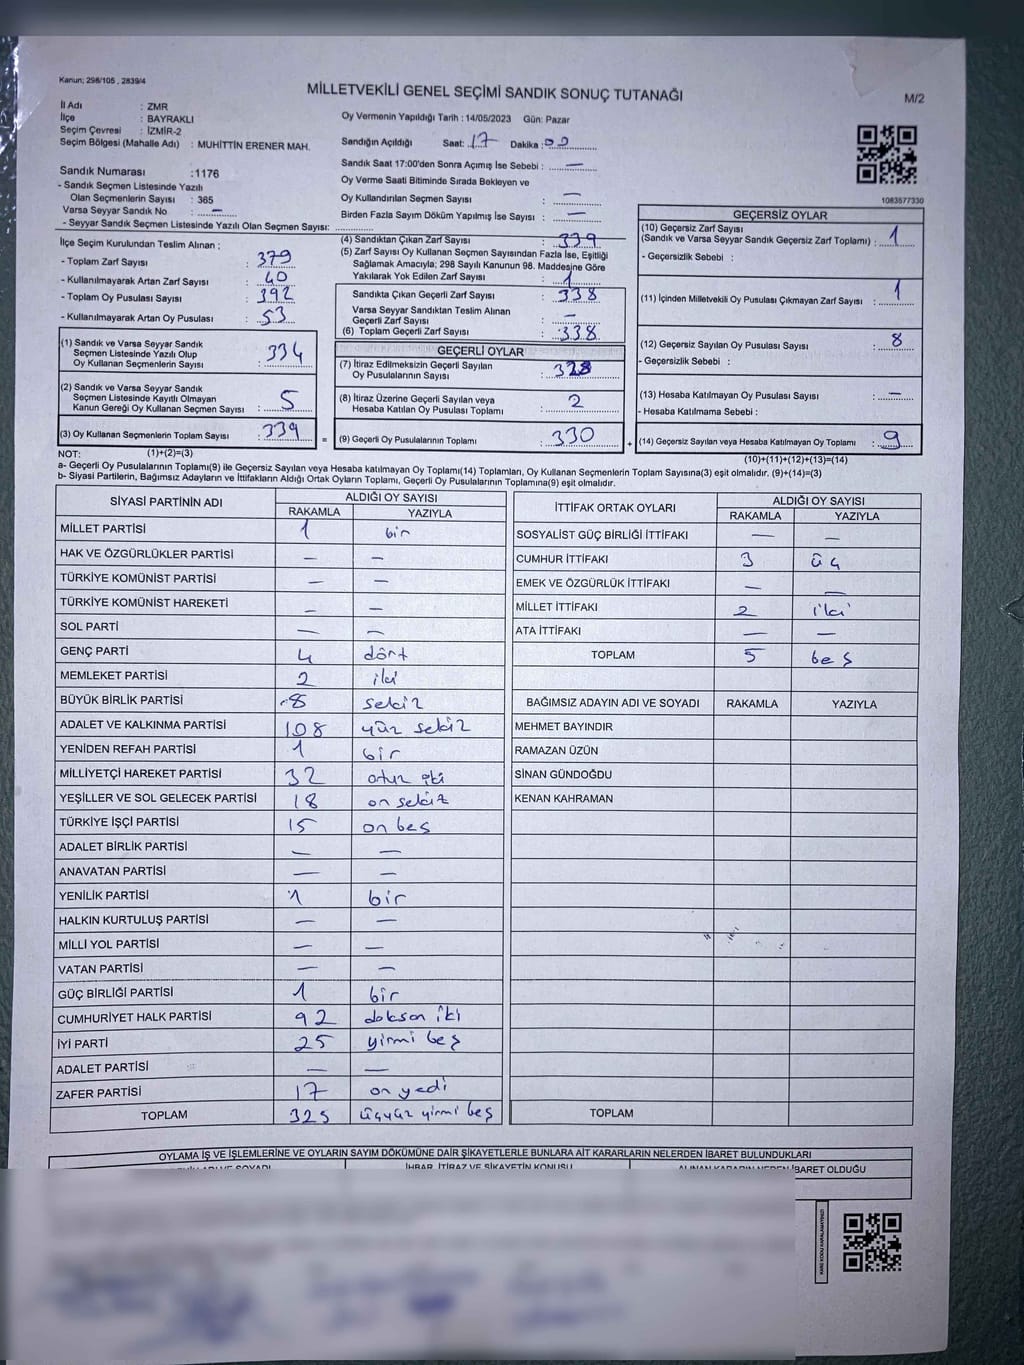 Kanun; 298/105 , 2839/4
MİLLETVEKİLİ GENEL SEÇİMİ SANDIK SONUÇ TUTANAĞI
M/2
İl Adı : ZMR
İlçe : BAYRAKLI
Seçim Çevresi : İZMİR-2
Seçim Bölgesi (Mahalle Adı) : MUHİTTİN ERENER MAH.
Oy Vermenin Yapıldığı Tarih : 14/05/2023 Gün: Pazar
Sandığın Açıldığı Saat: 17 Dakika : 00
Sandık Saat 17:00'den Sonra Açımış İse Sebebi : —
Oy Verme Saati Bitiminde Sırada Bekleyen ve
Oy Kullandırılan Seçmen Sayısı : —
Birden Fazla Sayım Döküm Yapılmış İse Sayısı : —
1083577330
Sandık Numarası :1176
- Sandık Seçmen Listesinde Yazılı
Olan Seçmenlerin Sayısı : 365
Varsa Seyyar Sandık No : —
- Seyyar Sandık Seçmen Listesinde Yazılı Olan Seçmen Sayısı:
İlçe Seçim Kurulundan Teslim Alınan :
- Toplam Zarf Sayısı : 379
- Kullanılmayarak Artan Zarf Sayısı : 40
- Toplam Oy Pusulası Sayısı : 392
- Kullanılmayarak Artan Oy Pusulası : 53
(1) Sandık ve Varsa Seyyar Sandık
Seçmen Listesinde Yazılı Olup
Oy Kullanan Seçmenlerin Sayısı : 334
(2) Sandık ve Varsa Seyyar Sandık
Seçmen Listesinde Kayıtlı Olmayan
Kanun Gereği Oy Kullanan Seçmen Sayısı : 5
(3) Oy Kullanan Seçmenlerin Toplam Sayısı : 339
(4) Sandıktan Çıkan Zarf Sayısı : 339
(5) Zarf Sayısı Oy Kullanan Seçmen Sayısından Fazla İse, Eşitliği
Sağlamak Amacıyla; 298 Sayılı Kanunun 98. Maddesine Göre
Yakılarak Yok Edilen Zarf Sayısı : 1
Sandıkta Çıkan Geçerli Zarf Sayısı : 338
Varsa Seyyar Sandıktan Teslim Alınan
Geçerli Zarf Sayısı : —
(6) Toplam Geçerli Zarf Sayısı : 338
GEÇERLİ OYLAR
(7) İtiraz Edilmeksizin Geçerli Sayılan
Oy Pusulalarının Sayısı : 328
(8) İtiraz Üzerine Geçerli Sayılan veya
Hesaba Katılan Oy Pusulası Toplamı : 2
= (9) Geçerli Oy Pusulalarının Toplamı : 330
GEÇERSİZ OYLAR
(10) Geçersiz Zarf Sayısı
(Sandık ve Varsa Seyyar Sandık Geçersiz Zarf Toplamı) : 1
- Geçersizlik Sebebi :
(11) İçinden Milletvekili Oy Pusulası Çıkmayan Zarf Sayısı : 1
(12) Geçersiz Sayılan Oy Pusulası Sayısı : 8
- Geçersizlik Sebebi :
(13) Hesaba Katılmayan Oy Pusulası Sayısı : —
- Hesaba Katılmama Sebebi :
+ (14) Geçersiz Sayılan veya Hesaba Katılmayan Oy Toplamı : 9
NOT: (1)+(2)=(3)
(10)+(11)+(12)+(13)=(14)
a- Geçerli Oy Pusulalarının Toplamı(9) ile Geçersiz Sayılan veya Hesaba katılmayan Oy Toplamı(14) Toplamları, Oy Kullanan Seçmenlerin Toplam Sayısına(3) eşit olmalıdır. (9)+(14)=(3)
b- Siyasi Partilerin, Bağımsız Adayların ve İttifakların Aldığı Ortak Oyların Toplamı, Geçerli Oy Pusulalarının Toplamına(9) eşit olmalıdır.
SİYASİ PARTİNİN ADI ALDIĞI OY SAYISI
RAKAMLA YAZIYLA
MİLLET PARTİSİ 1 bir
HAK VE ÖZGÜRLÜKLER PARTİSİ — —
TÜRKİYE KOMÜNİST PARTİSİ — —
TÜRKİYE KOMÜNİST HAREKETİ — —
SOL PARTİ — —
GENÇ PARTİ 4 dört
MEMLEKET PARTİSİ 2 iki
BÜYÜK BİRLİK PARTİSİ 8 sekiz
ADALET VE KALKINMA PARTİSİ 108 yüz sekiz
YENİDEN REFAH PARTİSİ 1 bir
MİLLİYETÇİ HAREKET PARTİSİ 32 otuz iki
YEŞİLLER VE SOL GELECEK PARTİSİ 18 on sekiz
TÜRKİYE İŞÇİ PARTİSİ 15 on beş
ADALET BİRLİK PARTİSİ — —
ANAVATAN PARTİSİ — —
YENİLİK PARTİSİ 1 bir
HALKIN KURTULUŞ PARTİSİ — —
MİLLİ YOL PARTİSİ — —
VATAN PARTİSİ — —
GÜÇ BİRLİĞİ PARTİSİ 1 bir
CUMHURİYET HALK PARTİSİ 92 doksan iki
İYİ PARTİ 25 yirmi beş
ADALET PARTİSİ — —
ZAFER PARTİSİ 17 on yedi
TOPLAM 325 üçyüz yirmi beş
İTTİFAK ORTAK OYLARI ALDIĞI OY SAYISI
RAKAMLA YAZIYLA
SOSYALİST GÜÇ BİRLİĞİ İTTİFAKI — —
CUMHUR İTTİFAKI 3 üç
EMEK VE ÖZGÜRLÜK İTTİFAKI — —
MİLLET İTTİFAKI 2 iki
ATA İTTİFAKI — —
TOPLAM 5 beş
BAĞIMSIZ ADAYIN ADI VE SOYADI RAKAMLA YAZIYLA
MEHMET BAYINDIR
RAMAZAN ÜZÜN
SİNAN GÜNDOĞDU
KENAN KAHRAMAN
TOPLAM
OYLAMA İŞ VE İŞLEMLERİNE VE OYLARIN SAYIM DÖKÜMÜNE DAİR ŞİKAYETLERLE BUNLARA AİT KARARLARIN NELERDEN İBARET BULUNDUKLARI
İHBAR, İTİRAZ VE ŞİKAYETİN KONUSU ALINAN KARARIN NEDEN İBARET OLDUĞU